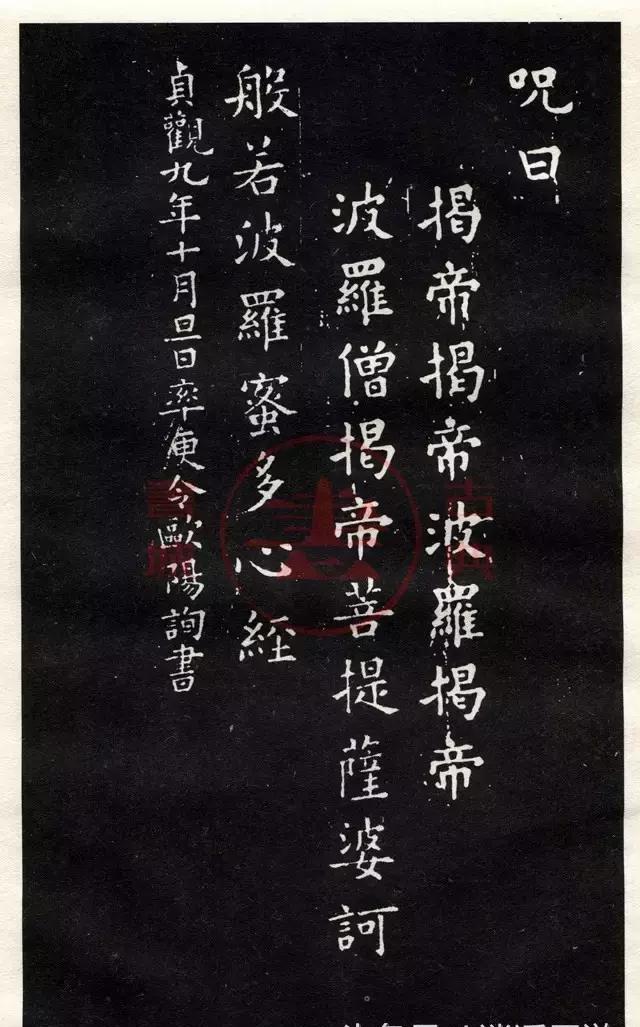 呪曰
揭帝揭帝波羅揭帝
波羅僧揭帝菩提薩婆訶
般若波羅蜜多心經
貞觀九年十月旦日率更令歐陽詢書